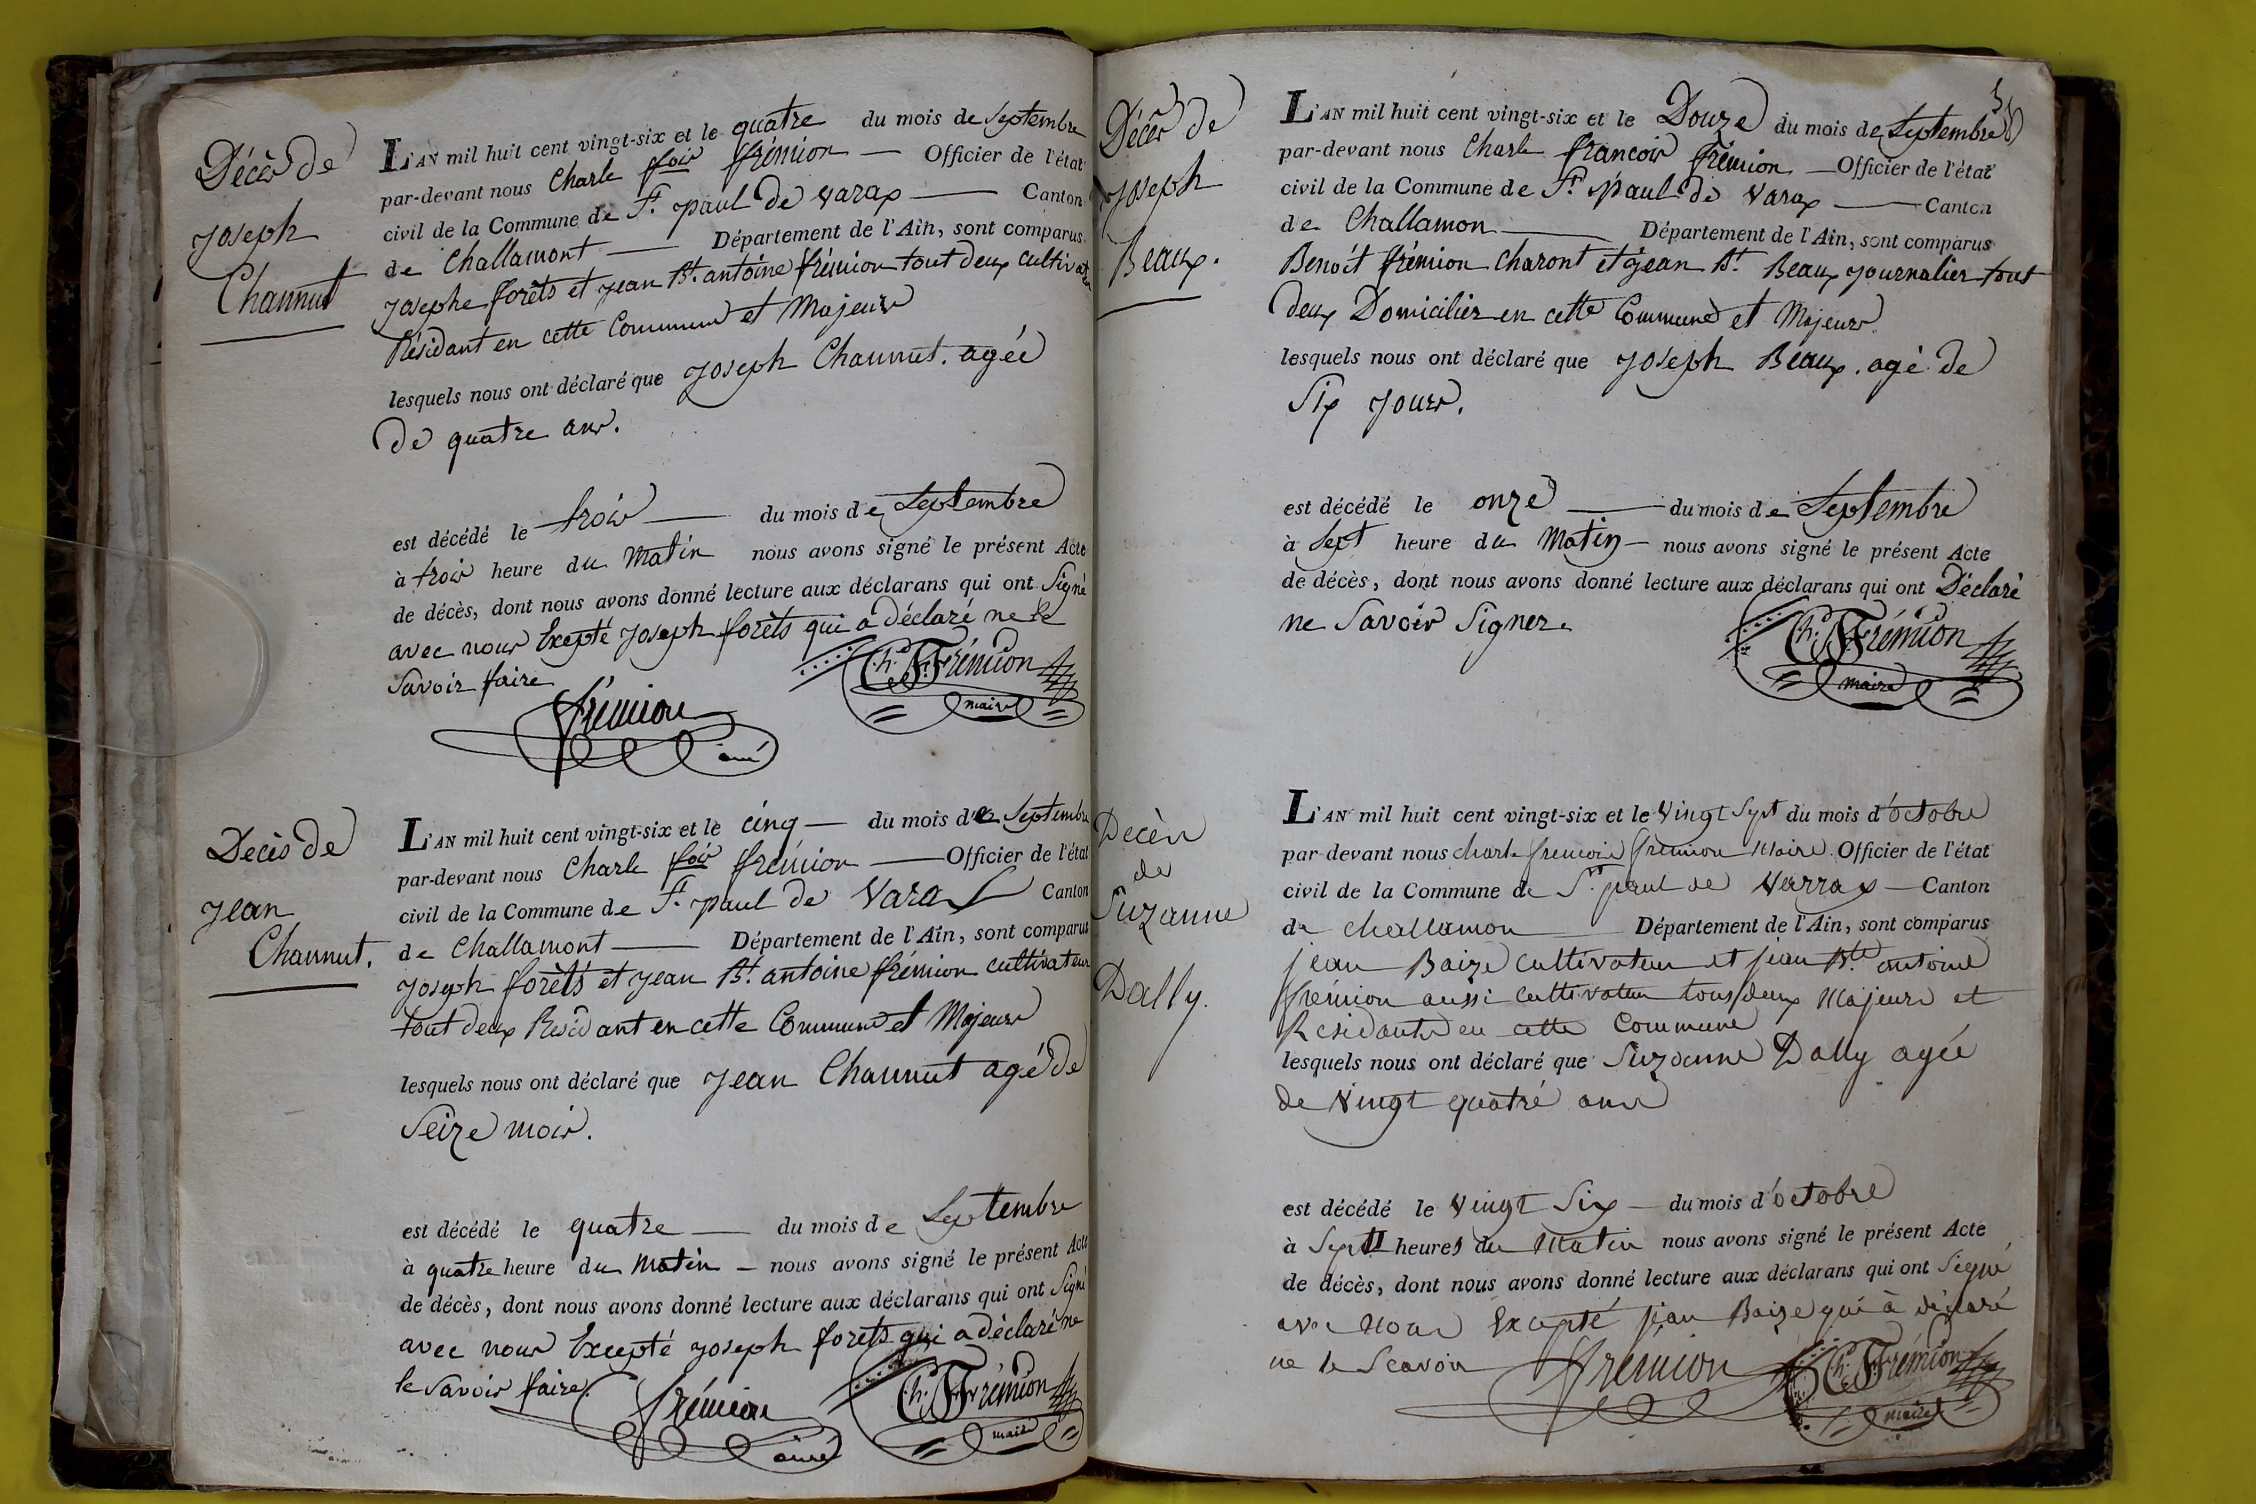 Décès de
Joseph
Channut
L'AN mil huit cent vingt-six et le quatre du mois de Septembre
par-devant nous Charle fois frémion — Officier de l'état
civil de la Commune de St. paul de varax — Canton
de Challamont — Département de l'Ain, sont comparus
Josephe forêts et jean Bt. antoine frémion tout deux cultivateur
Résidant en cette Commune et Majeurs
lesquels nous ont déclaré que Joseph Channut. agée
de quatre ans.
est décédé le trois — du mois de Septembre
à trois heure du Matin nous avons signé le présent Acte
de décès, dont nous avons donné lecture aux déclarans qui ont Signé
avec nous Excepté Joseph forêts qui a Déclaré ne le
Savoir faire
frémion
ainé
Ch. F. Frémion
maire
Décès de
Jean
Channut.
L'AN mil huit cent vingt-six et le cinq — du mois de Septembre
par-devant nous Charle fois frémion — Officier de l'état
civil de la Commune de St. paul de Varax Canton
de Challamont — Département de l'Ain, sont comparus
Joseph forêts et jean Bt. antoine frémion cultivateur
tout deux Residant en cette Commune et Majeurs
lesquels nous ont déclaré que Jean Channut agé de
Seize mois.
est décédé le quatre — du mois de Septembre
à quatre heure du Matin — nous avons signé le présent Acte
de décès, dont nous avons donné lecture aux déclarans qui ont Signé
avec nous Excepté Joseph forets qui a déclaré ne
le Savoir faire.
frémion
ainé
Ch. F. Frémion
maire
Décès de
Joseph
Beaux.
L'AN mil huit cent vingt-six et le Douze du mois de Septembre
par-devant nous Charle françois frémion — Officier de l'état
civil de la Commune de St. paul de varax — Canton
de Challamon — Département de l'Ain, sont comparus
Benoit frémion charont et jean Bt. Beaux journalier tout
deux Domicilier en cette Commune et Majeurs
lesquels nous ont déclaré que Joseph Beaux. agé de
Six jours.
est décédé le onze — du mois de Septembre
à Sept heure du Matin — nous avons signé le présent Acte
de décès, dont nous avons donné lecture aux déclarans qui ont Déclaré
ne Savoir Signer.
Ch. F. Frémion
maire
Decès
de
Suzanne
Dally.
L'AN mil huit cent vingt-six et le Vingt Sept du mois d'octobre
par-devant nous charle francois frémion Maire Officier de l'état
civil de la Commune de St. paul de Varrax — Canton
de challamon Département de l'Ain, sont comparus
jean Baize cultivateur et jean Bte antoine
frémion aussi cultivateur tous deux Majeurs et
Residants en cette Commune
lesquels nous ont déclaré que Suzanne Dally agée
de Vingt quatre ans
est décédé le Vingt Six — du mois d'octobre
à Sept heures du Matin nous avons signé le présent Acte
de décès, dont nous avons donné lecture aux déclarans qui ont Signé
avec Nous Excepté jean Baize qui à déclaré
ne le Scavoir
frémion
Ch. F. Frémion
maire